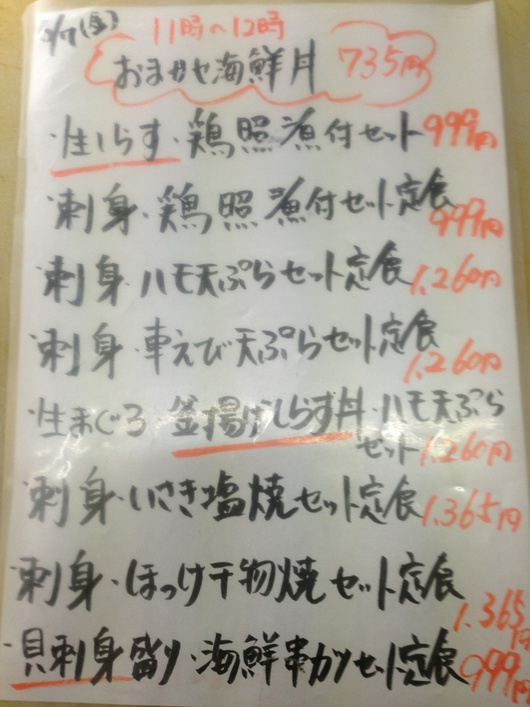 /7(金) 11時〜12時
おまかせ海鮮丼 735円
・生しらす・鶏照煮付セット 999円
・刺身・鶏照煮付セット定食 999円
・刺身・ハモ天ぷらセット定食 1,260円
・刺身・車えび天ぷらセット定食 1,260円
・生まぐろ 釜揚げしらす丼・ハモ天ぷら
セット 1,260円
・刺身・いさき塩焼セット定食 1,365円
・刺身・ほっけ干物焼セット定食 1,365円
・貝刺身盛り・海鮮串カツセット定食 999円